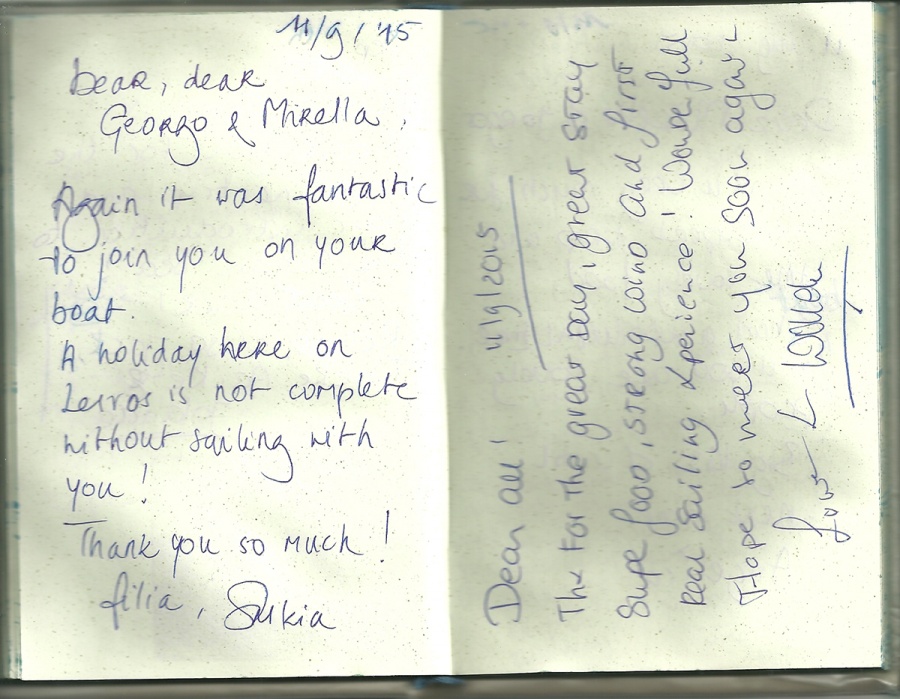 11/9/'15
Dear, dear
Georgo & Mirella,
Again it was fantastic
to join you on your
boat.
A holiday here on
Leros is not complete
without sailing with
you!
Thank you so much!
filia,
Dear all! 11/9/2015
Thx For the great Day, great stay
Supe food, strong wind and first
Real Sailing Xperience! Wonderfull
Hope to meet you soon again
Love